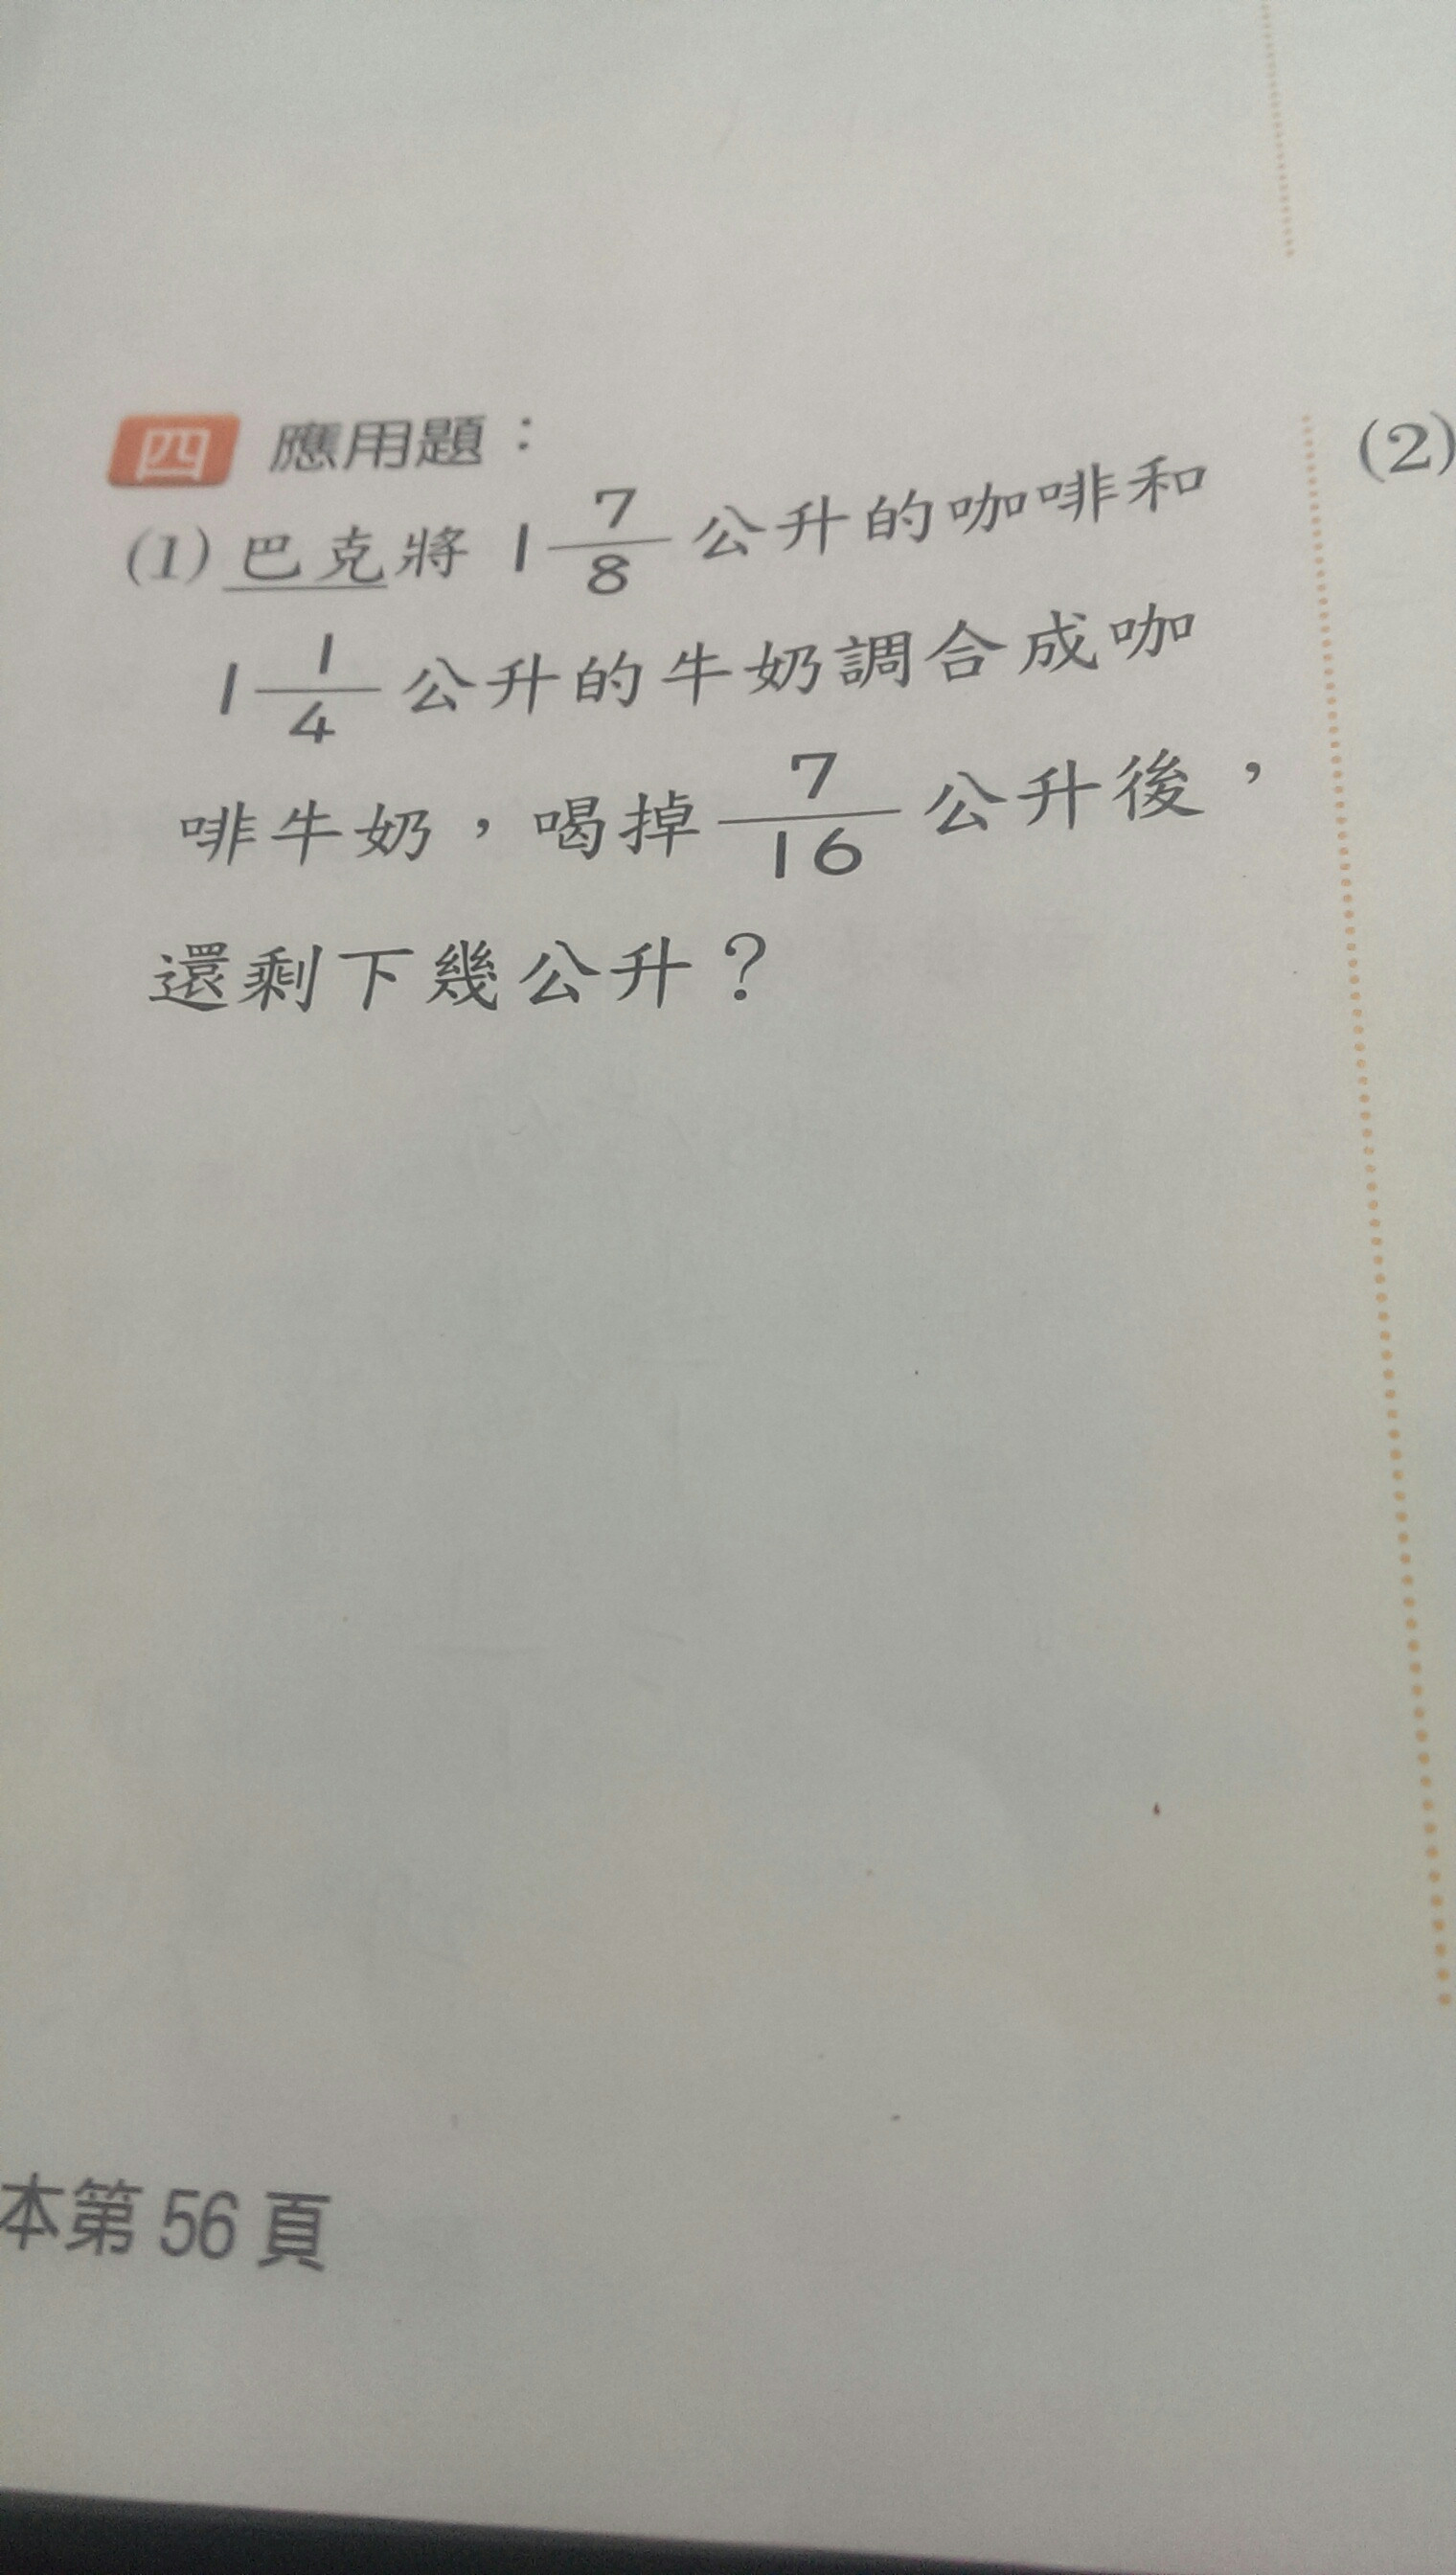 四 應用題：
(1) 巴克將 1 7/8 公升的咖啡和
1 1/4 公升的牛奶調合成咖
啡牛奶，喝掉 7/16 公升後，
還剩下幾公升？
(2)
本第 56 頁